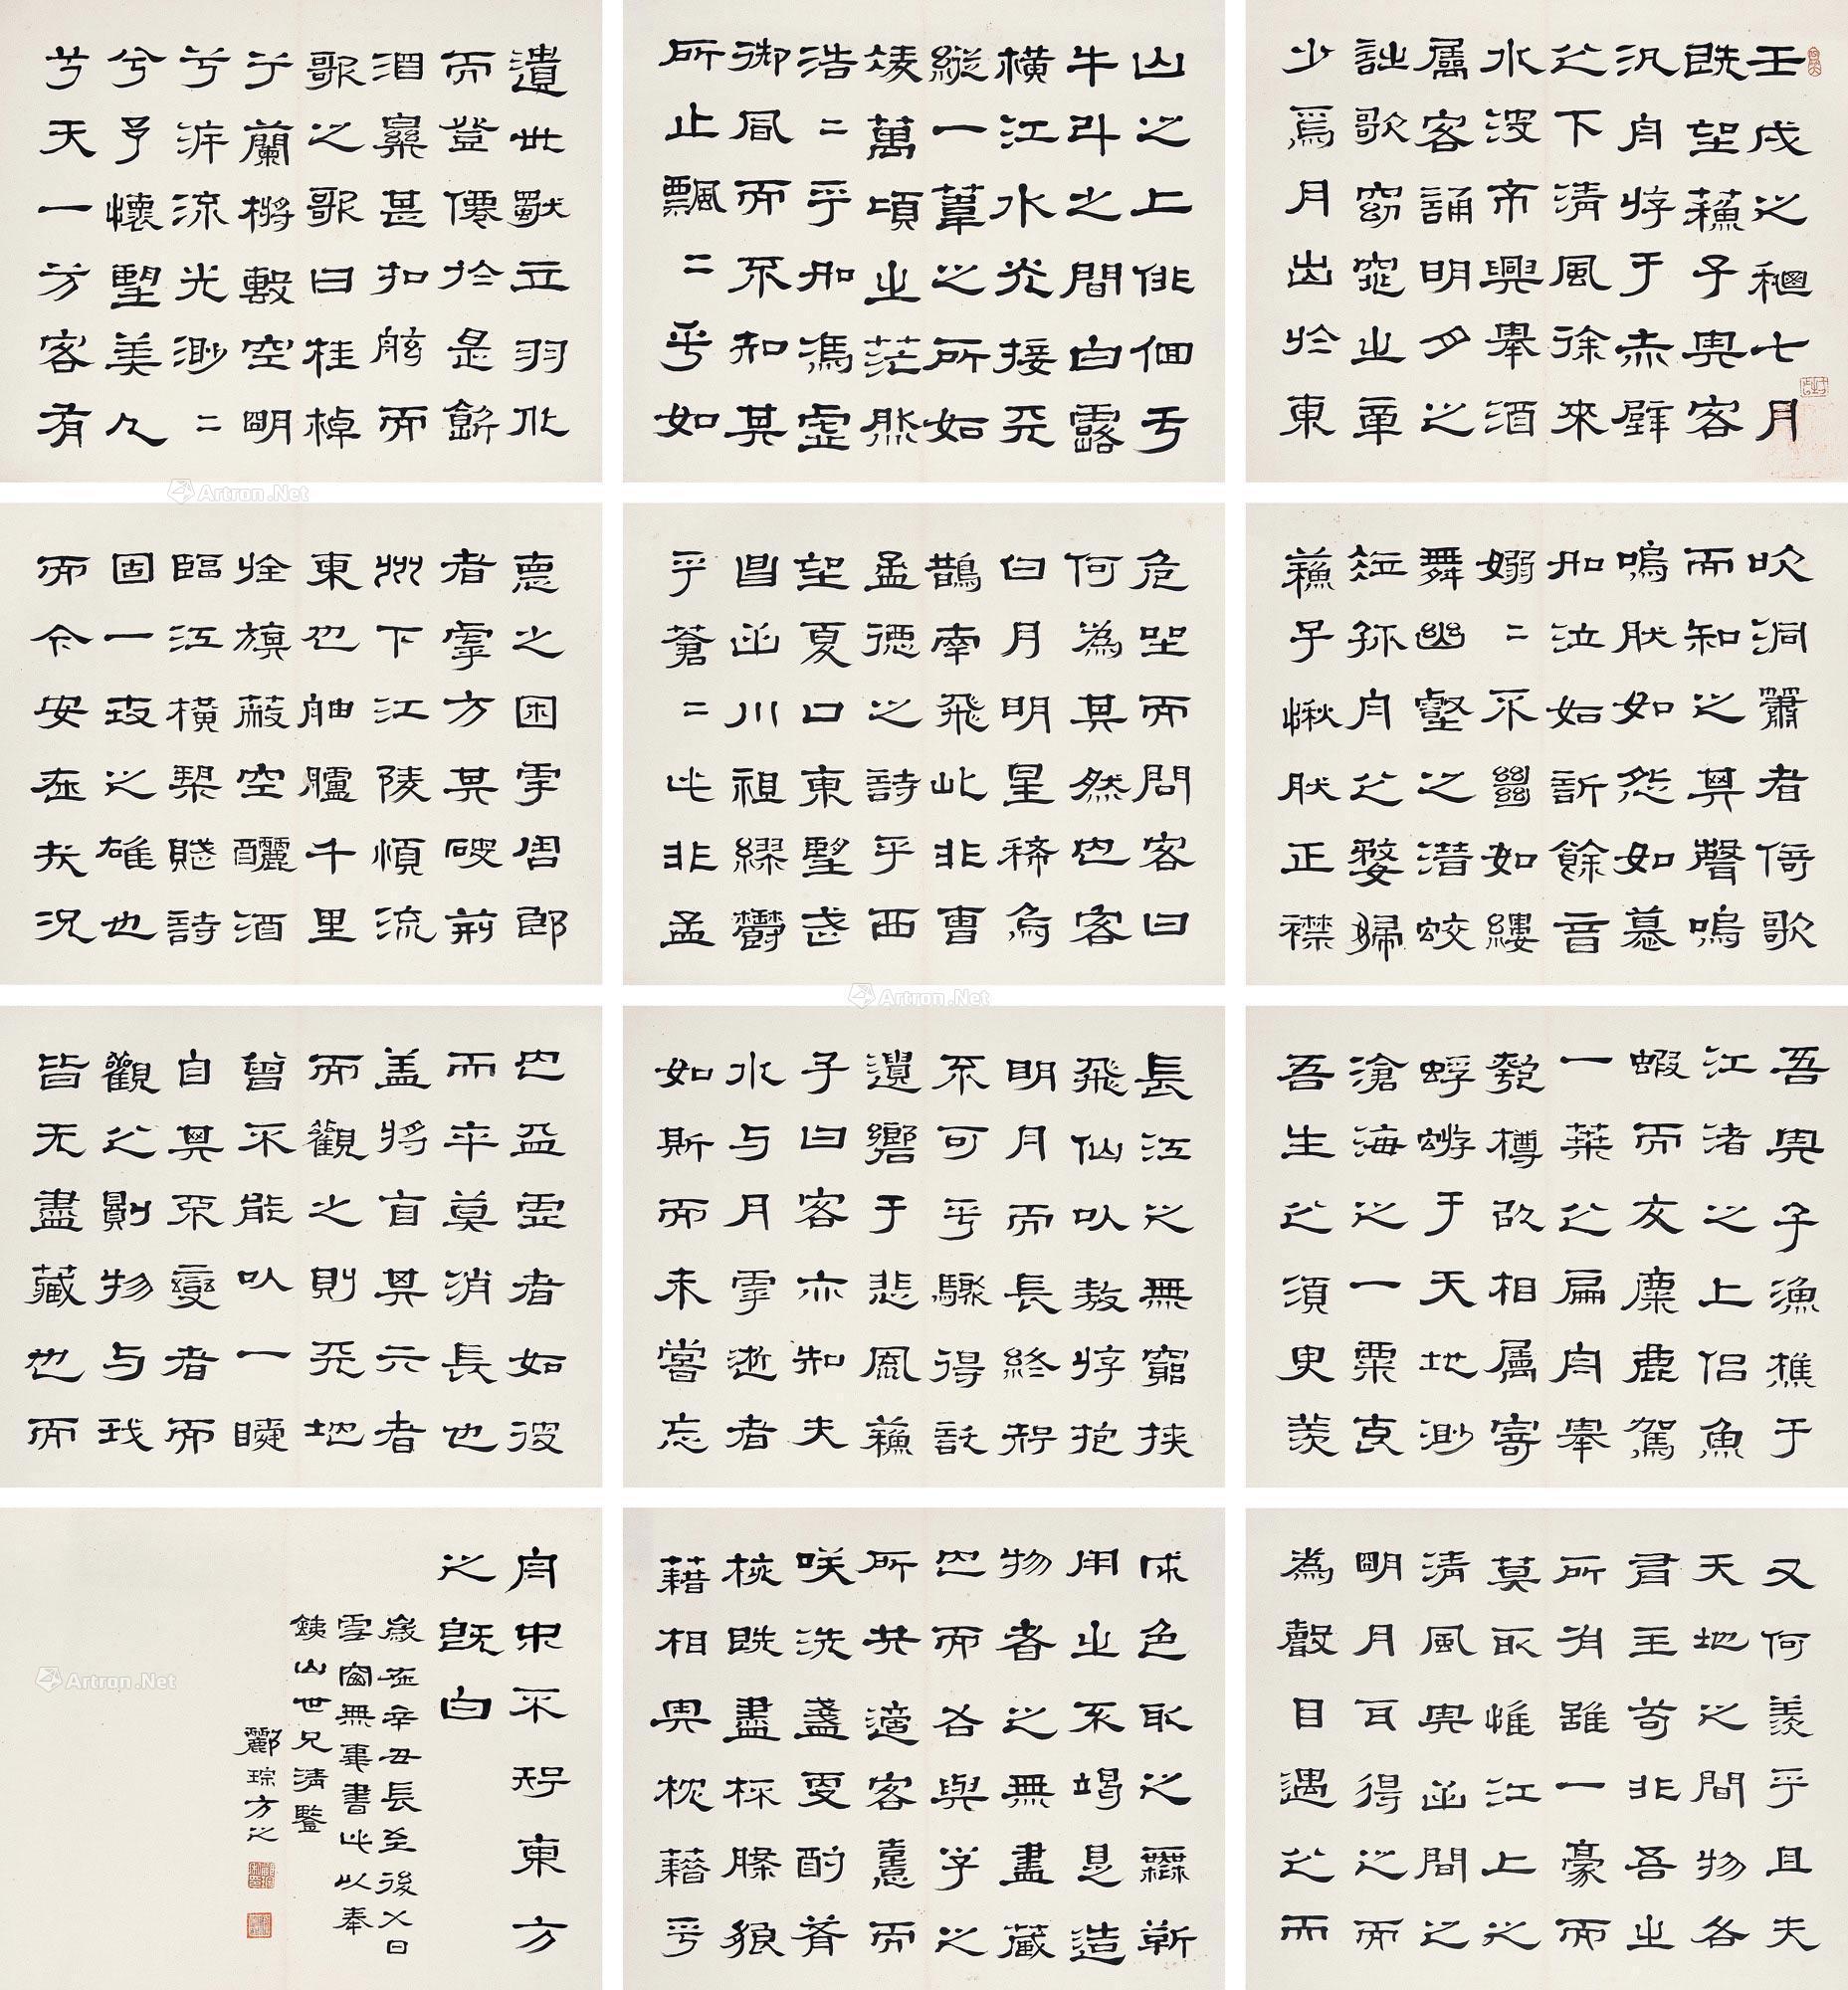 壬戌之穐七月
既望蘇子與客
汎舟游于赤壁
之下清風徐來
水波不興舉酒
属客誦明月之
詩歌窈窕之章
少焉月出於東
山之上俳佪于
牛斗之間白露
横江水光接天
縱一葦之所如
凌萬頃之茫然
浩二乎如馮虛
御風而不知其
所止飄二乎如
遺世獸立羽化
而登僊於是飲
酒樂甚扣舷而
歌之歌曰桂棹
兮蘭槳擊空明
兮泝流光渺二
兮予懷望美人
兮天一方客有
吹洞簫者倚歌
而和之其聲嗚
嗚肰如怨如慕
如泣如訴餘音
嫋二不絕如縷
舞幽壑之潛蛟
泣孤舟之嫠婦
蘇子愀肰正襟
危坐而問客曰
何為其然也客
曰月明星稀烏
鵲南飛此非曹
孟德之詩乎西
望夏口東望武
昌山川相繆鬱
乎蒼二此非孟
悳之困乎周郎
者乎方其破荊
州下江陵順流
東也舳艫千里
旌旗蔽空釃酒
臨江橫槊賦詩
固一世之雄也
而今安在哉況
吾與子漁樵于
江渚之上侶魚
蝦而友麋鹿駕
一葉之扁舟舉
匏樽以相属寄
蜉蝣于天地渺
滄海之一粟哀
吾生之須臾羨
長江之無窮挾
飛仙以敖游抱
明月而長終知
不可乎驟得託
遺響于悲風蘇
子曰客亦知夫
水与月乎逝者
如斯而未嘗忘
也盈虛者如彼
而卒莫消長也
盖將自其六者
而觀之則天地
曾不能以一瞬
自其不變者而
觀之則物与我
皆无盡藏也而
又何羨乎且夫
天地之間物各
君主苟非吾之
所有雖一豪而
莫取惟江上之
清風與山間之
明月耳得之而
為聲目遇之而
成色取之無禁
用之不竭是造
物者之無盡藏
也而吾與子之
所共適客喜而
咲洗盞更酌肴
核既盡杯盤狼
藉相與枕藉乎
舟中不知東方
之既白
歲在辛丑長至後乂日
雪窗無事書此以奉
銕山世兄清鑒
酈琮方之